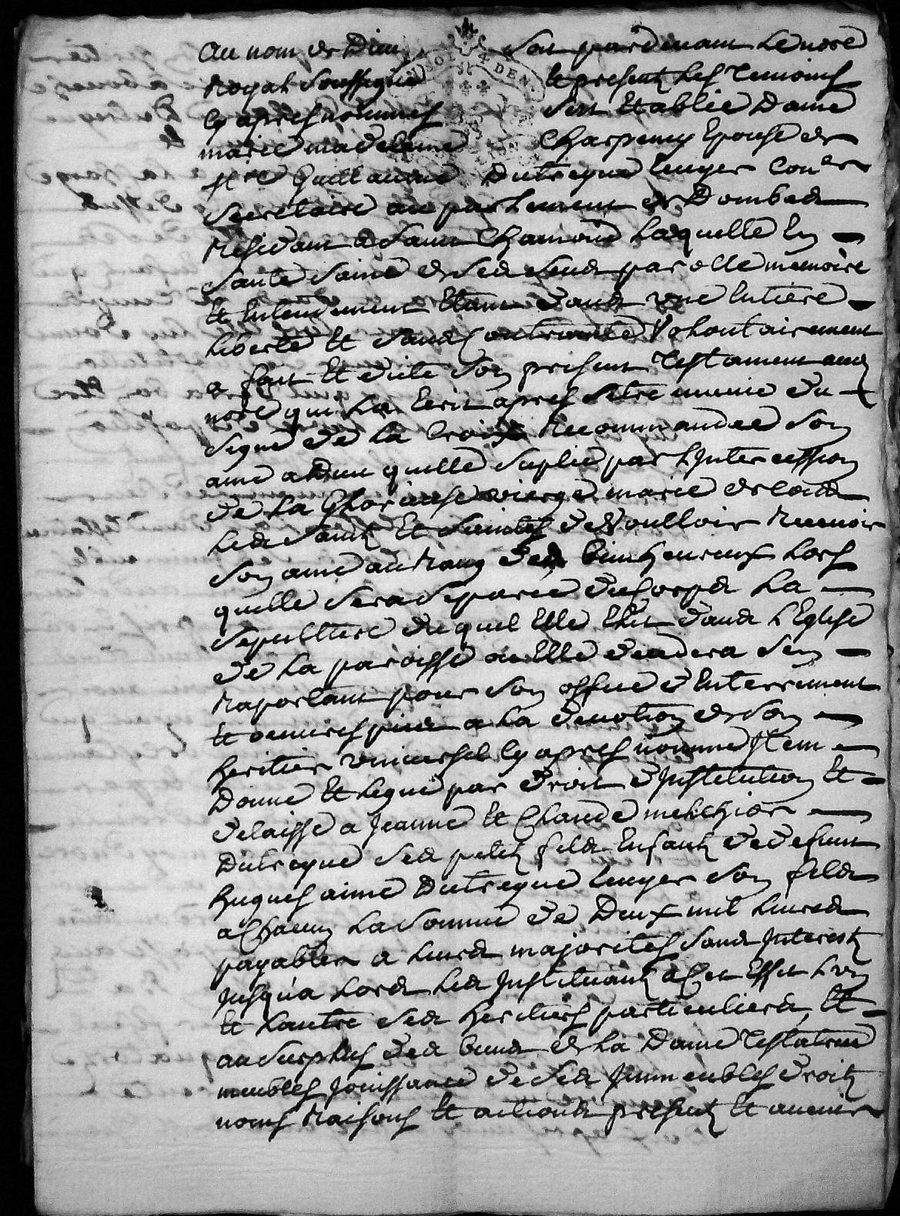 au nom de Dieu Soit pardevant Le no.re
Royal Soussigné Et present Les Temoins
cy apres nommes Sest Etablie Dame
marie madelaine Charpeney Epouse de
S.r Guillaume Dutreyve Ecuyer Con.er
Secretaire au parlement de Dombes
Residant a Saint Chamond Laquelle En
Santé Saine de Ses Sens parolle memoire
Et Entendement Etant dans une Entiere
Liberté Et Sans contrainte Volontairement
a fait Et dicté Son present Testament aud
no.re qui La Ecrit apres Sêtre munie du
Signe de La Croix Recommandée Son
ame a Dieu quelle Suplie par L'Intercession
de La Glorieuse vierge marie de tous
Les Saints Et Saintes de Voulloir Recevoir
Son ame au Rang des bien heureux Lors
quelle Sera Separée du Corps La
Sepulture duquel Elle Elit dans L'Eglise
de La paroisse ou Elle decedera Sen
Raportant pour Son office d'Enterrement
Et oeuvres pies a La devotion de Son
heritier universel cy apres nommé Item
Donne Et Legue par droit d'Institution Et
delaisse a Jeanne Et Claude melchior
Dutreyve Ses petits fils Enfants de defunt
hugues aimé Dutreyve Ecuyer Son fils
a Chacun La Somme de Deux mil Livres
payables a Leurs majorités Sans Interest
Jusqua Lors Les Instituant a Cet Effet L'un
Et Lautre Ses heritiers particuliers Et
au Surplus des biens de La Dame Testatrice
meubles Jouissance de Ses Immeubles droits
noms Raisons Et actions presents Et avenir